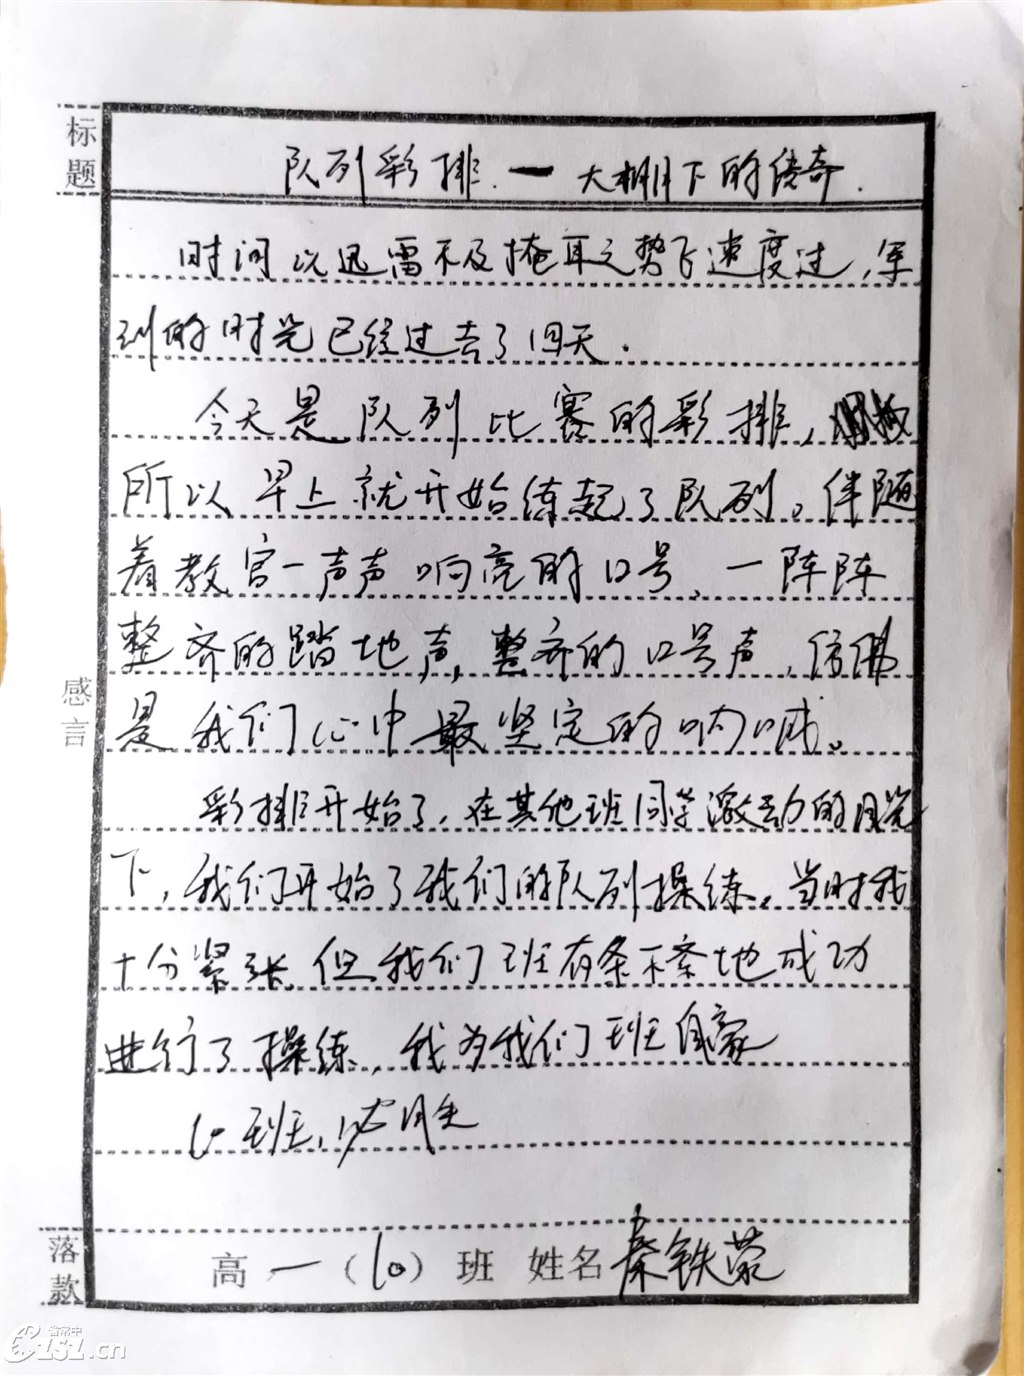 标题
队列彩排.一大棚下的传奇.
时间以迅雷不及掩耳之势飞速度过,军
训的时光已经过去了四天.
今天是队列比赛的彩排,
所以早上就开始练起了队列。伴随
着教官一声声响亮的口号,一阵阵
整齐的踏地声,整齐的口号声,仿佛
是我们心中最坚定的呐喊。
感言
彩排开始了,在其他班同学激动的目光
下,我们开始了我们的队列操练。当时我
十分紧张,但我们班有条不紊地成功
进行了操练,我为我们班自豪
10班,必胜
落款
高一(10)班 姓名秦铁蒙
省常中
CZSZ.cn